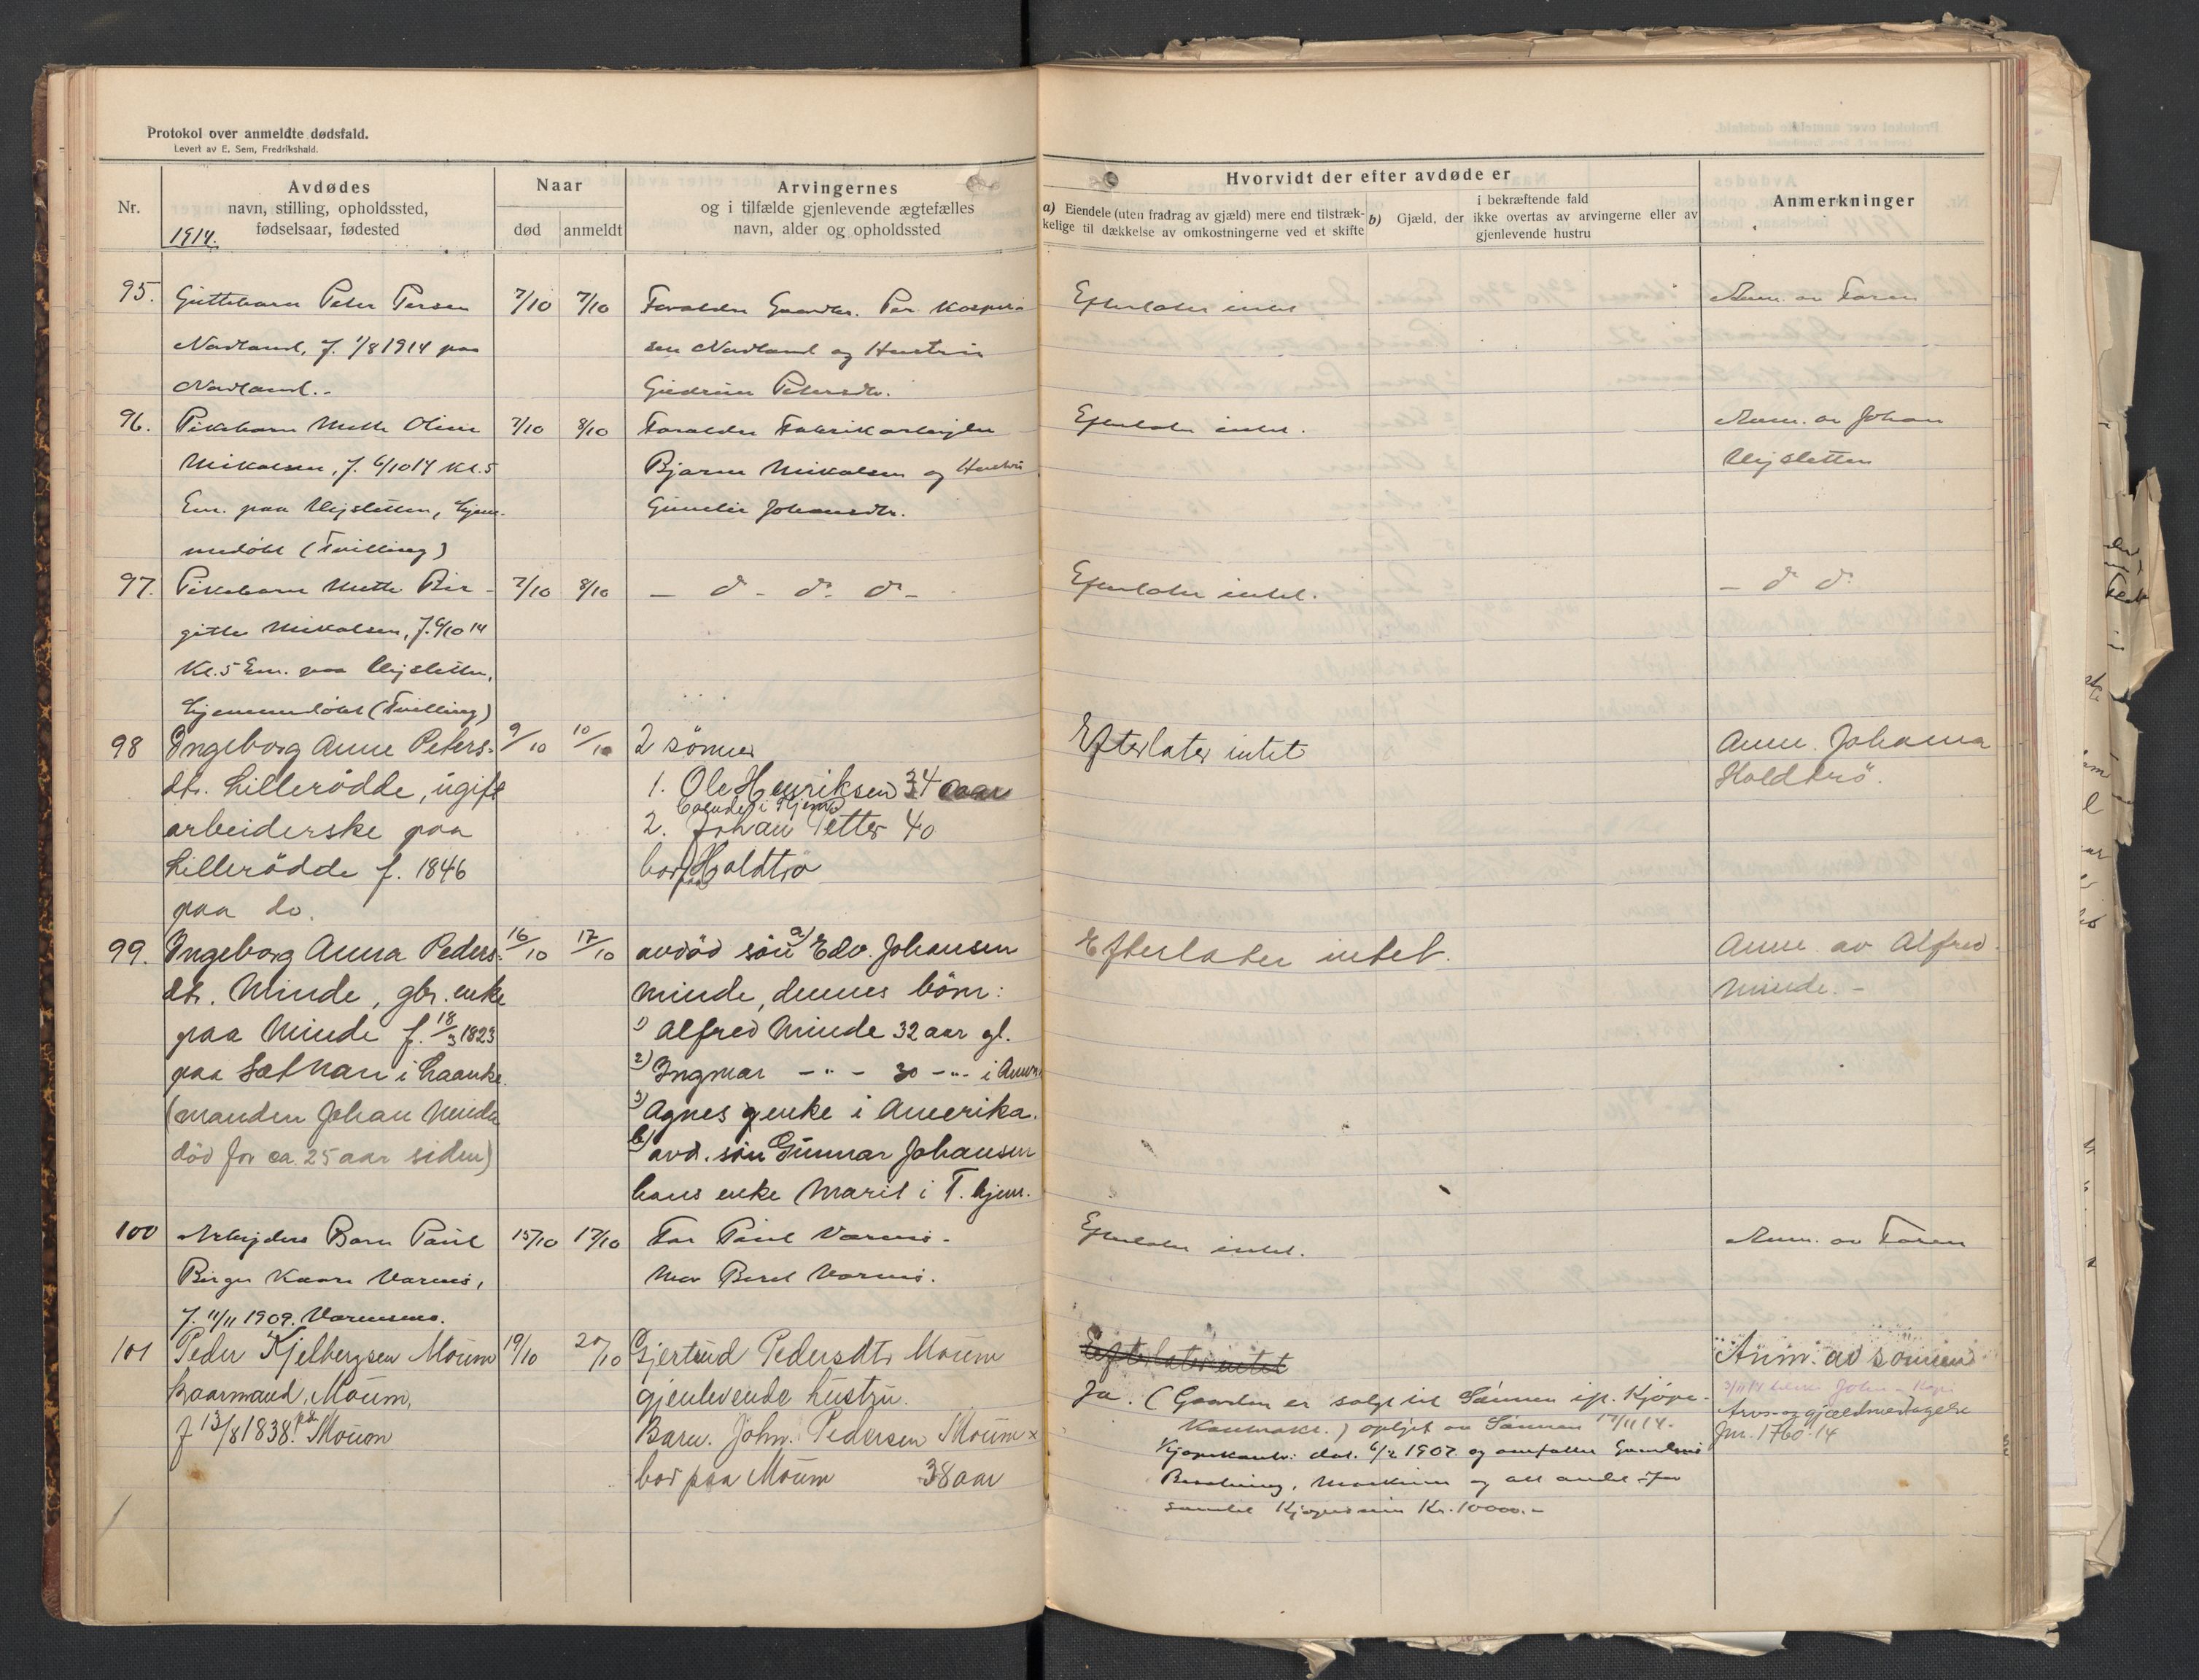 Protokol over anmeldte dødsfald.
Levert av E. Sem, Fredrikshald.
Nr.
Avdødes
navn, stilling, opholdssted,
fødselsaar, fødested
1914.
Naar
død
anmeldt
Arvingernes
og i tilfælde gjenlevende ægtefælles
navn, alder og opholdssted
Hvorvidt der efter avdøde er
a) Eiendele (uten fradrag av gjæld) mere end tilstræk-
kelige til dækkelse av omkostningerne ved et skifte
b) Gjæld, der
i bekræftende fald
ikke overtas av arvingerne eller av
gjenlevende hustru
Anmerkninger
95.
Guttebarn Peter Persen
Navland, f. 1/8 1914 paa
Navland.-
7/10
7/10
Foraldre Gaardbr. Per
sen Navland og Hustru
Gudrun Petersdtr.
Efterlater intet
Anm. av Faren
96.
Pikebarn Mette Oline
Mikalsen, f. 6/10 14 kl. 5
Em. paa Vejsletten, hjem-
medøbt (Tvilling)
7/10
8/10
Foraldre Fabrikarbejder
Bjarne Mikalsen og Hustru
Gunelie Johansdtr.
Efterlater intet.
Anm. av Johan
Vejsletten
97.
Pikebarn Mette Bir-
gitte Mikalsen, f. 6/10 14
Kl. 5 Em. paa Vejsletten,
hjemmedøbt (Tvilling)
7/10
8/10
- do - do. do -
Efterlater intet.
- do do.
98
Ingeborg Anne Peters-
dtr. Lillerødde, ugift
arbeiderske paa
Lillerødde f. 1846
paa do.
9/10
10/10
2 sønner
1. Ole Henriksen 34 aar
boende i Hjemmet
2. Johan Petter 40
bor paa Holdtrø
Efterlater intet
Anm. Johanna
Holdtrø.
99.
Ingeborg Anna Peders-
dtr. Minde, gbr. enke
paa Minde f. 18/3 1823
paa Sætnan i Laanke.
(manden Johan Minde
død for ca. 25 aar siden)
16/10
17/10
avdød søn a) Edv. Johansen
Minde, dennes børn:
1) Alfred Minde 32 aar gl.
2) Ingmar - " - 30 - " - i Amer.
3) Agnes g enke i Amerika.
b) avd. søn Gunnar Johansen
hans enke Marit i T.hjem.
Efterlater intet.
Anm. av Alfred
Minde. -
100
Arbejders Barn Paul
Birger Kaare Varmo,
f. 11/11 1909.
15/10
17/10
Far Paul Varmo.
Mor Beret Varmo.
Efterlater intet.
Anm. av Faren
101
Peder Kjelbergsen Moum
kaarmand, Moum,
f 13/8 1838. paa Moum
19/10
20/10
Gjertrud Pedersdtr Moum
gjenlevende hustru.
Barn. John. Pedersen Moum x
bor paa Moum 38 aar
Efterlater intet
Ja. (Gaarden er solgt til Sønnen ifl. Kjøpe-
kontrakt.) oplyst av Sønnen 17/11 14.
Kjøpekontr: dat. 6/2 1907 og omfatter
Besætning, Maskiner og alt andet for
samlet Kjøpesum Kr. 10000.-
Anm. av sønnen
Arvs- og gjældsvedtagelse
Jnr. 1760-14